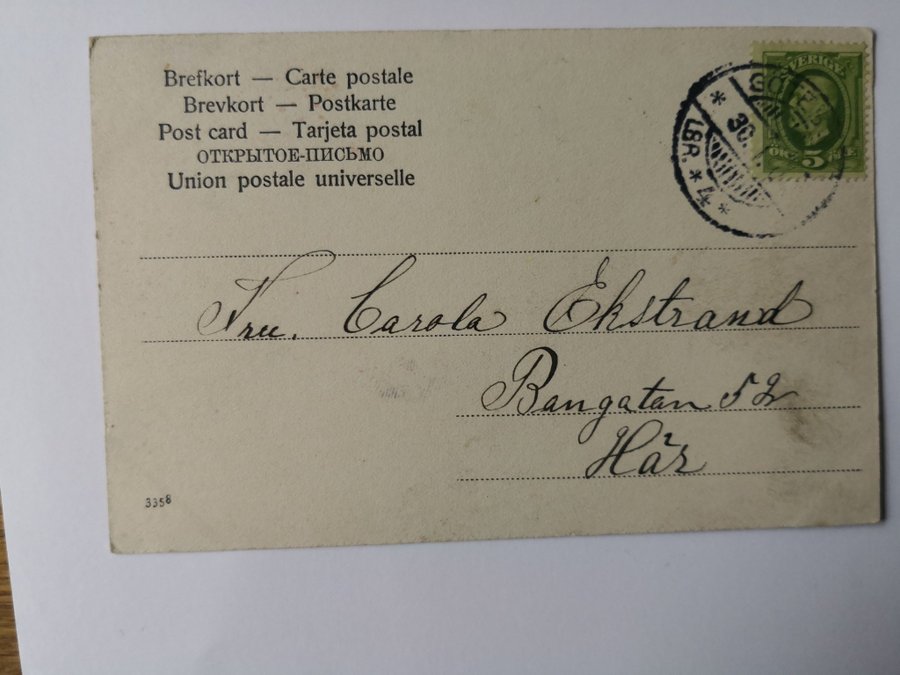 Brefkort — Carte postale
Brevkort — Postkarte
Post card — Tarjeta postal
ОТКРЫТОЕ-ПИСЬМО
Union postale universelle
SVERIGE
5
LBR.
Fru. Carola Ekstrand
Bangatan 52
Här
3358